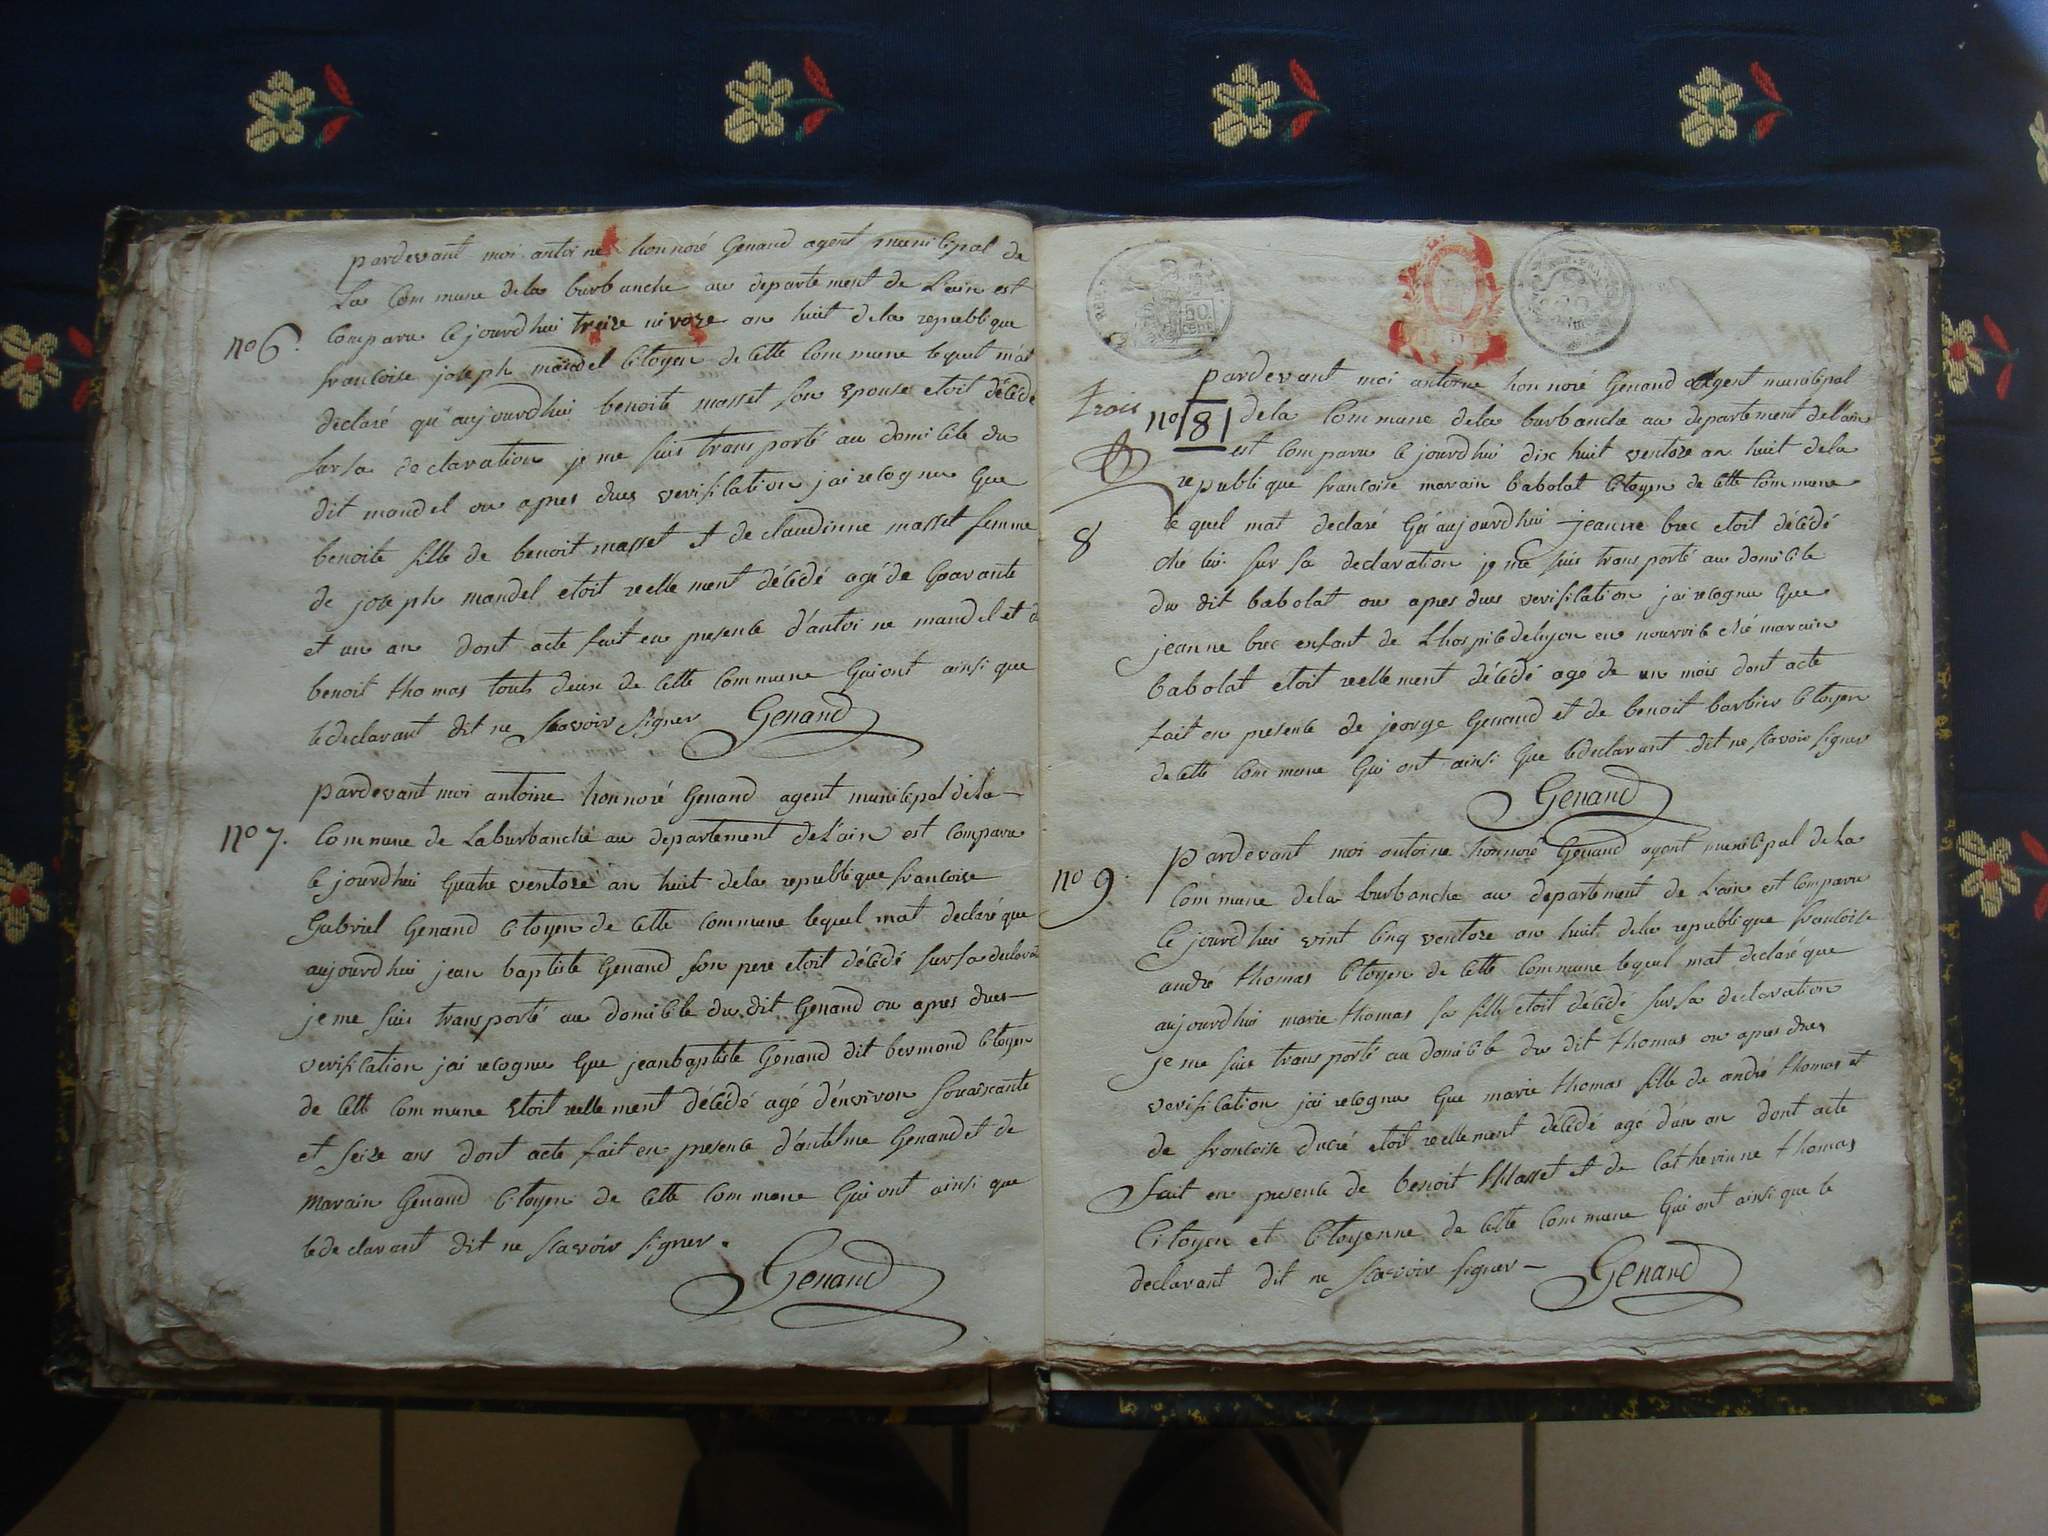 pardevant moi antoine honnoré Genand agent municipal de
La Commune dela burbanche au departement de L'ain est
no 6. Comparu cejourdhui treize nivoze an huit dela republique
francoise joseph mandel Citoyen de Cette Commune lequel m'at
declaré qu'aujourdhui benoite masset son Epouse etoit décédé
sur sa declaration je me suis transporté au domicile du
dit mandel ou apres dues verification jai recognu que
benoite fille de benoit masset et de claudinne masset femme
de joseph mandel etoit reellement décédé agé de Garante
et un an dont acte fait en presence d'antoine mandel et d
benoit thomas touts deux de Cette Commune Qui ont ainsi que
le declarant dit ne scavoir signer Genand
pardevant moi antoine honnoré Genand agent municipal dela
no 7. Commune de Laburbanche au departement de L'ain est Comparu
Ce jourdhui Quatre ventoze an huit dela republique francoise
Gabriel Genand Citoyen de Cette Commune lequel mat declaré que
aujourdhui jean baptiste Genand son pere etoit décédé sur sa declara
je me suis transporté au domicile du dit Genand ou apres dues
verification jai recognu Que jeanbaptiste Genand dit bermond Citoyen
de Cette Commune Etoit reellement décédé agé d'environ souaixante
et seize ans dont acte fait en presence d'antelme Genand et de
marain Genand Citoyen de Cette Commune Qui ont ainsi que
le declarant dit ne scavoir signer.
Genand
50 cent
pardevant moi antoine honnoré Genand Agent municipal
Trois
no 8 dela Commune dela burbanche au departement de L'ain
est Comparu Ce jourdhui dix huit ventoze an huit dela
republique francoise marain babolat Citoyen de Cette Commune
8 le quel mat declaré Qu'aujourdhui jeanne brec etoit décédé
ché lui sur sa declaration je me suis transporté au domicile
du dit babolat ou apres dues verification jai recognu Que
jeanne brec enfant de Lhospice de lyon en nourrice ché marain
babolat etoit reellement décédé agé de un mois dont acte
fait en presence de jeorge Genand et de benoit barbier Citoyen
de Cette Commune Qui ont ainsi Que le declarant dit ne scavoir signer
Genand
pardevant moi antoine honnoré Genand agent municipal dela
no 9. Commune dela burbanche au departement de L'ain est Comparu
Ce jourdhui vint Cinq ventoze an huit dela republique francoise
andré thomas Citoyen de Cette Commune lequel mat declaré que
aujourdhui marie thomas sa fille etoit décédé sur sa declaration
je me suis transporté au domicile du dit thomas ou apres dues
verification jai recognu Que marie thomas fille de andré thomas et
de francoise ducré etoit reellement décédé agé d'un an dont acte
fait en presence de benoit Masset et de Catherinne thomas
Citoyen et Citoyenne de Cette Commune Qui ont ainsi que le
declarant dit ne scavoir signer Genand